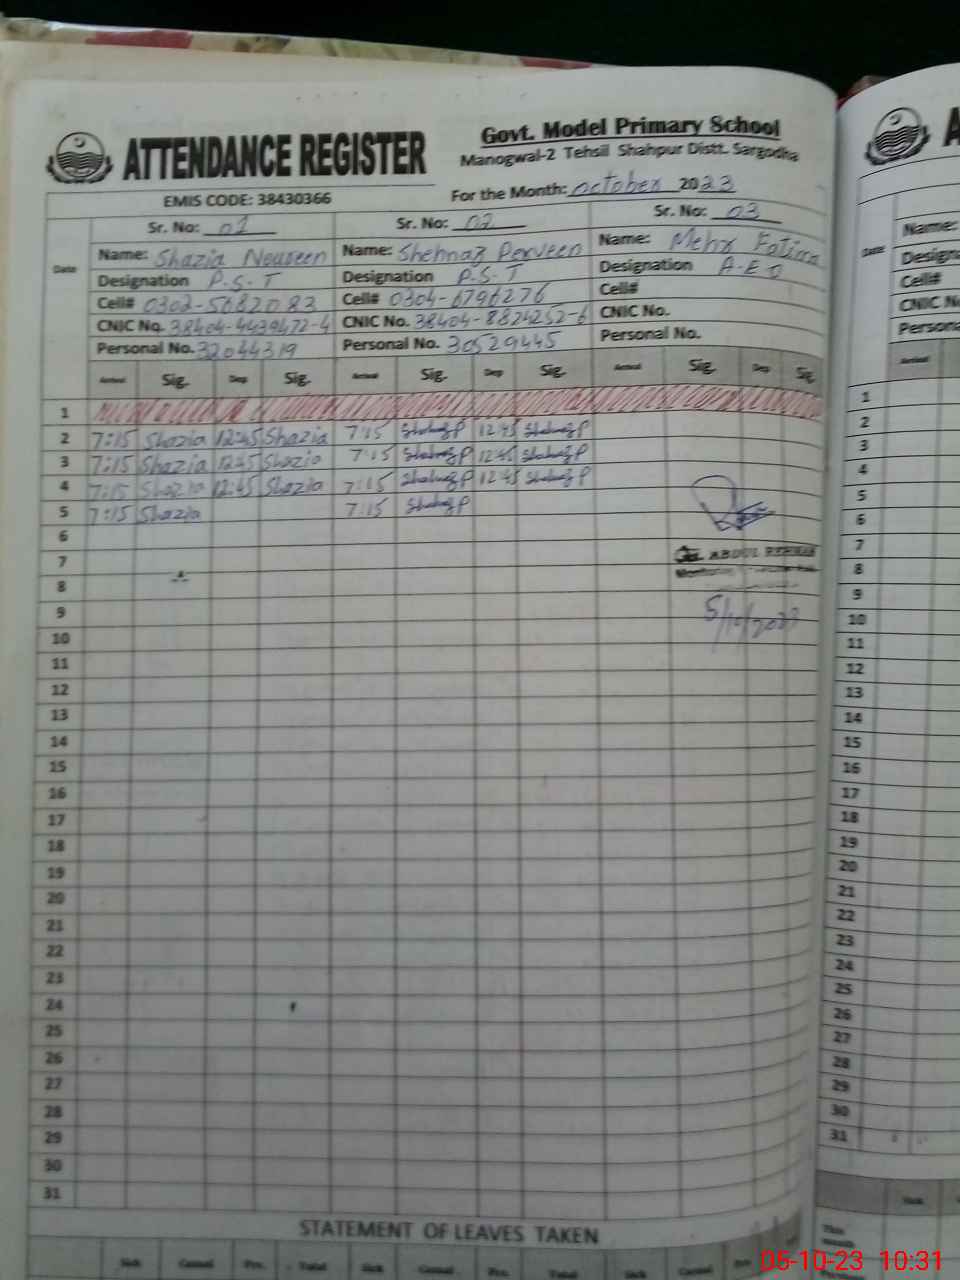 ATTENDANCE REGISTER
Govt. Model Primary School
Manogwal-2 Tehsil Shahpur Distt. Sargodha
EMIS CODE: 38430366
For the Month: October 2023
Sr. No: 01 Sr. No: 02 Sr. No: 03
Date
Name: Shazia Noureen Name: Shehnaz Perveen Name: Mehr Fatima
Designation P.S.T Designation P.S.T Designation A-EO
Cell# 0302-5682083 Cell# 0304-6796276 Cell#
CNIC No. 38404-4439472-4 CNIC No. 38404-8824252-6 CNIC No.
Personal No. 32044319 Personal No. 30529445 Personal No.
Arrival Sig. Dep Sig. Arrival Sig. Dep Sig. Arrival Sig. Dep Sig
1
2 7:15 Shazia 12:45 Shazia 7:15 Shehnaz P 12:45 Shehnaz P
3 7:15 Shazia 12:45 Shazia 7:15 Shehnaz P 12:45 Shehnaz P
4 7:15 Shazia 12:45 Shazia 7:15 Shehnaz P 12:45 Shehnaz P
5 7:15 Shazia 7:15 Shehnaz P
6
7 ABDUL REHMAN
8 Monitoring
9 5/10/2023
10
11
12
13
14
15
16
17
18
19
20
21
22
23
24
25
26
27
28
29
30
31
STATEMENT OF LEAVES TAKEN
Sick Casual Pre. Total Sick Casual Pre. Total Sick Casual Pre
A
Date
Name:
Design
Cell#
CNIC N
Persona
Arrival
1
2
3
4
5
6
7
8
9
10
11
12
13
14
15
16
17
18
19
20
21
22
23
24
25
26
27
28
29
30
31
Sick
This
Month
05-10-23 10:31